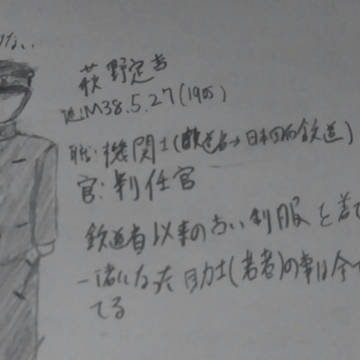 ない
荻野定吉
M38.5.27(1905)
職:機関士(鉄道省→日本国有鉄道)
官:判任官
鉄道省以来の古い制服を着て
一緒になった助士(若者)の事は全て
てる